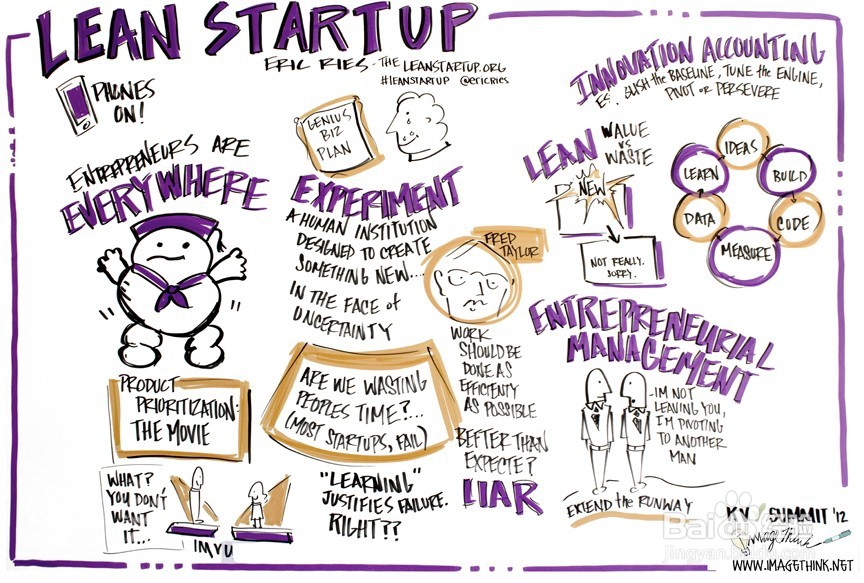 LEAN STARTUP
ERIC RIES - THE LEANSTARTUP.ORG
#leanstartup @ericries
PHONES
ON!
GENIUS
BIZ
PLAN
INNOVATION ACCOUNTING
THE BASELINE, TUNE the ENGINE,
PIVOT or PERSEVERE
ENTREPRENEURS ARE
EVERYWHERE
EXPERIMENT
A HUMAN INSTITUTION
DESIGNED TO CREATE
SOMETHING NEW...
IN THE FACE of
UNCERTAINTY
LEAN
VALUE
vs
WASTE
NEW
NOT REALLY.
SORRY.
IDEAS
BUILD
CODE
MEASURE
DATA
LEARN
FRED
TAYLOR
WORK
SHOULD BE
DONE AS
EFFICIENTY
AS POSSIBLE
BEFTER THAN
EXPECTE?
LIAR
ENTREPRENEURIAL
MANAGEMENT
-I'M NOT
LEAVING YOU,
I'M PIVOTING
TO ANOTHER
MAN
EXTEND the RUNWAY
ARE WE WASTING
PEOPLES TIME?...
(MOST STARTUPS, FAIL)
"LEARNING"
JUSTIFIES FAILURE.
RIGHT??
PRODUCT
PRIORITIZATION:
THE MOVIE
WHAT?
YOU DON'T
WANT
IT...
IMVU
SUMMIT '12
ImageThink
WWW.IMAGETHINK.NET
Bai
jingyan.baidu.com